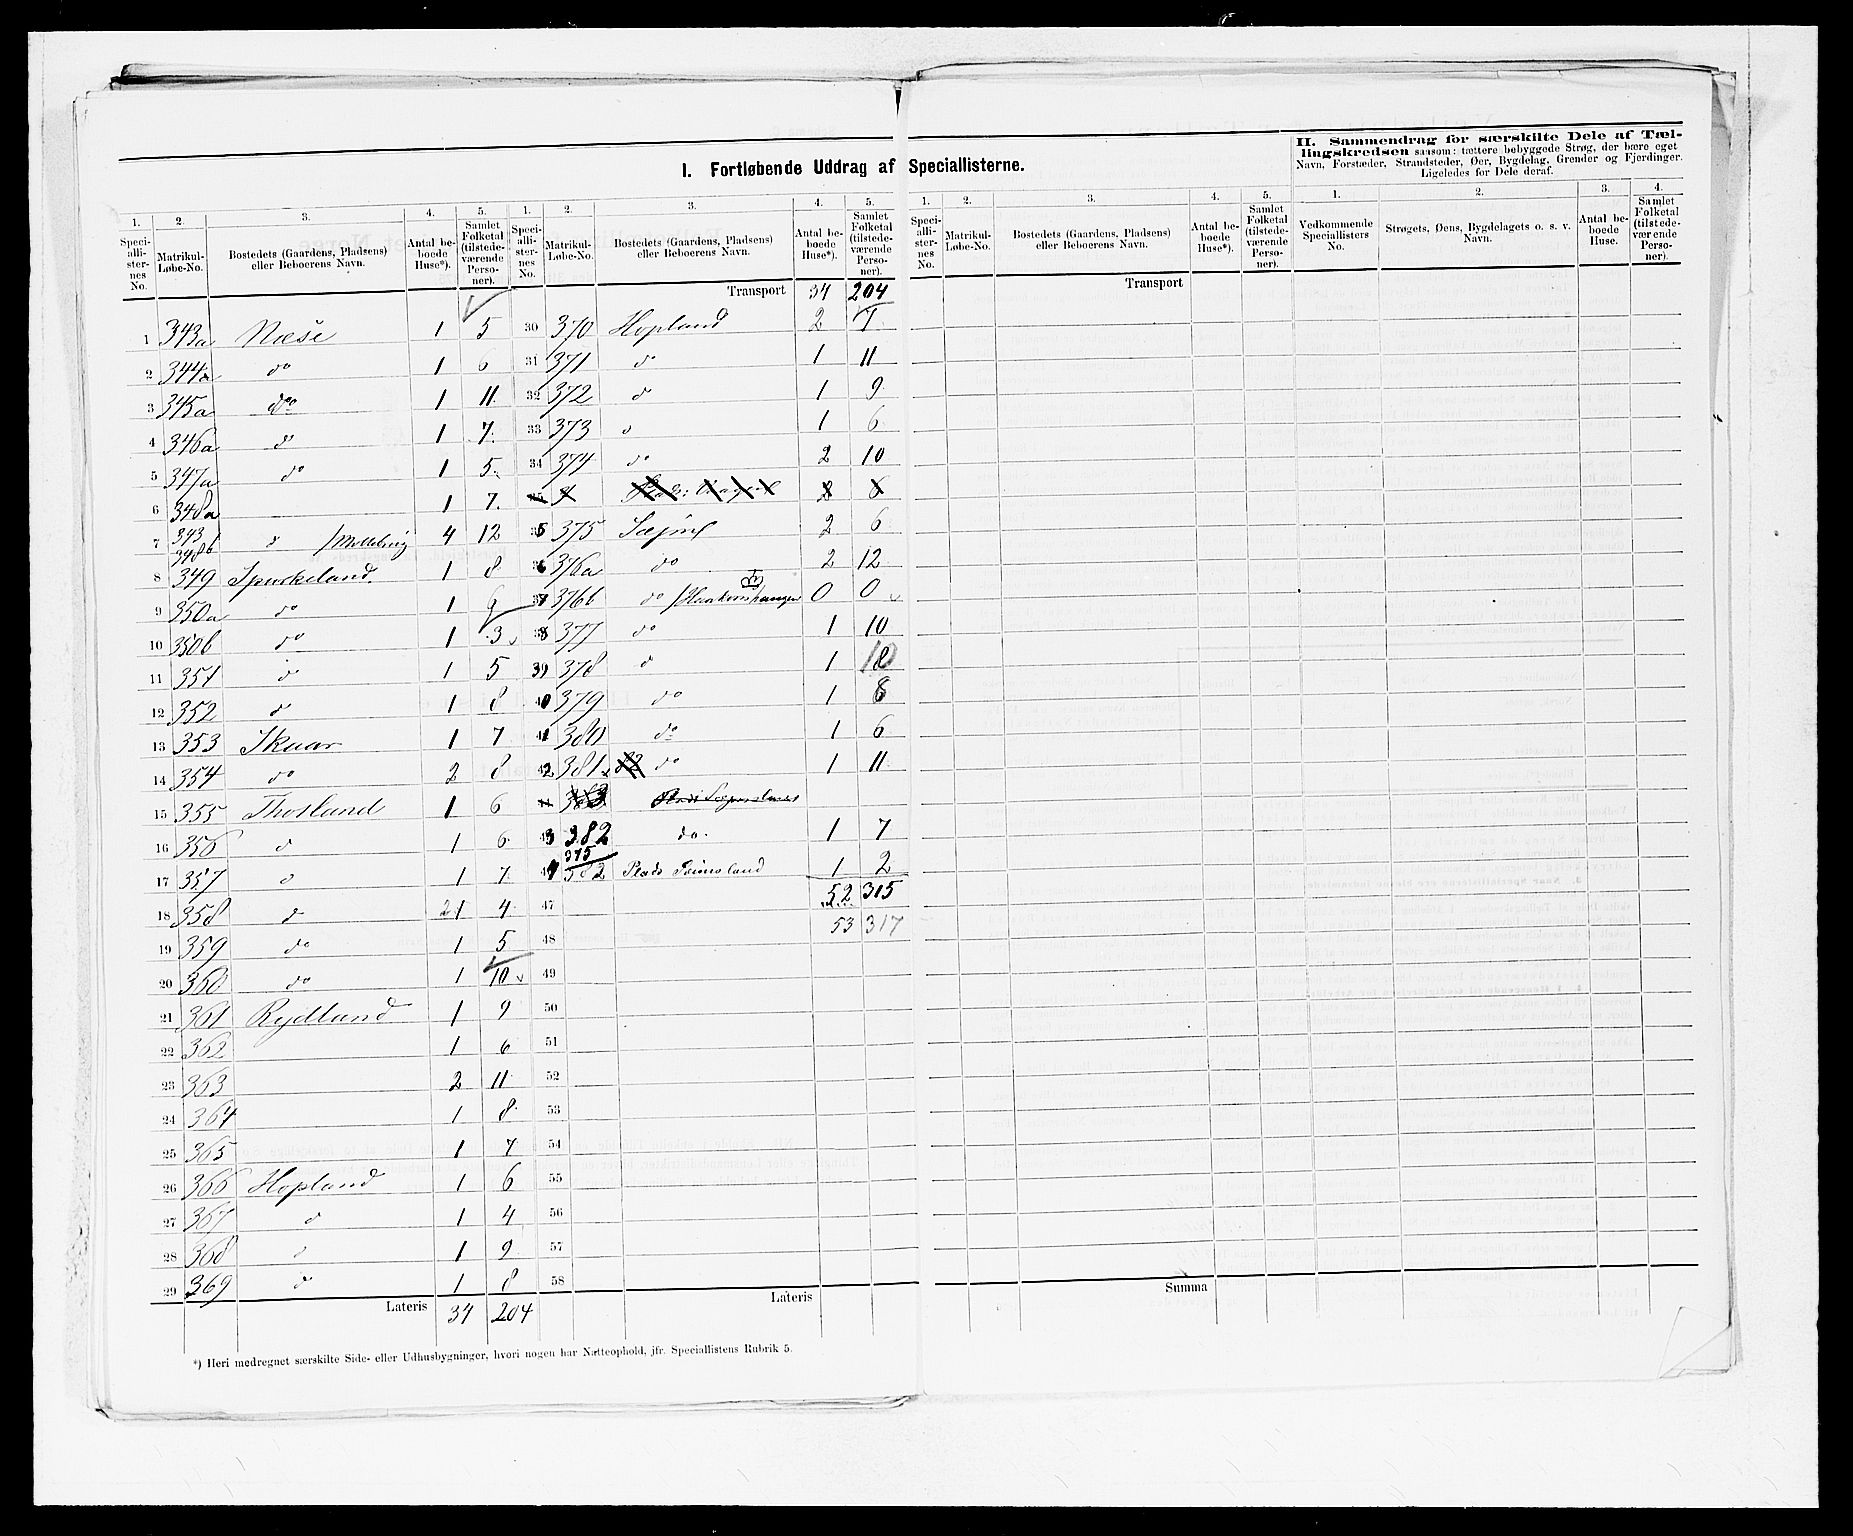 I. Fortløbende Uddrag af Speciallisterne.
II. Sammendrag for særskilte Dele af Tæl-
lingskredsen saasom: tættere bebyggede Strøg, der bære eget
Navn, Forstæder, Strandsteder, Øer, Bygdelag, Grender og Fjerdinger.
Ligeledes for Dele deraf.
1. 2. 3. 4. 5. 1. 2. 3. 4. 5. 1. 2. 3. 4. 5. 1. 2. 3. 4.
Speci-alli-ster-nes No. Matrikul-Løbe-No. Bostedets (Gaardens, Pladsens) eller Beboerens Navn. Antal be-boede Huse*). Samlet Folketal (tilstede-værende Perso-ner).
Speci-alli-ster-nes No. Matrikul-Løbe-No. Bostedets (Gaardens, Pladsens) eller Beboerens Navn. Antal be-boede Huse*). Samlet Folketal (tilstede-værende Perso-ner).
Speci-alli-ster-nes No. Matrikul-Løbe-No. Bostedets (Gaardens, Pladsens) eller Beboerens Navn. Antal be-boede Huse*). Samlet Folketal (tilstede-værende Perso-ner).
Vedkommende Speciallisters No. Strøgets, Øens, Bygdelagets o. s. v. Navn. Antal be-boede Huse. Samlet Folketal (tilstede-værende Perso-ner).
1 343a Næse 1 5
2 344a do 1 6
3 345a do 1 11
4 346a do 1 7
5 347a do 1 5
6 348a 1 7
7 343 348b do 4 12
8 349 Spurkeland 1 8
9 350a do 1 9
10 350b do 1 3
11 351 do 1 5
12 352 do 1 8
13 353 Skaar 1 7
14 354 do 2 8
15 355 Thosland 1 6
16 356 do 1 6
17 357 do 1 7
18 358 do 21 4
19 359 do 1 5
20 360 do 1 10
21 361 Rydland 1 9
22 362 1 6
23 363 2 11
24 364 1 8
25 365 1 7
26 366 Hopland 1 6
27 367 do 1 4
28 368 do 1 9
29 369 do 1 8
Lateris 34 204
Transport 34 204
30 370 Hopland 2
31 371 do 1 11
32 372 do 1 9
33 373 do 1 6
34 374 do 2 10
35 375 2 6
36 376a do 2 12
37 376b do 0 0
38 377 do 1 10
39 378 do 1
40 379 do 1 8
41 380 do 1 6
42 381 do 1 11
383
43 382 do. 1 7
44 375 382 Plads 1 2
47 52 315
53 317
48
49
50
51
52
53
54
55
56
57
58
Lateris
Transport
Summa
*) Heri medregnet særskilte Side- eller Udhusbygninger, hvori nogen har Natteophold, jfr. Speciallistens Rubrik 5.